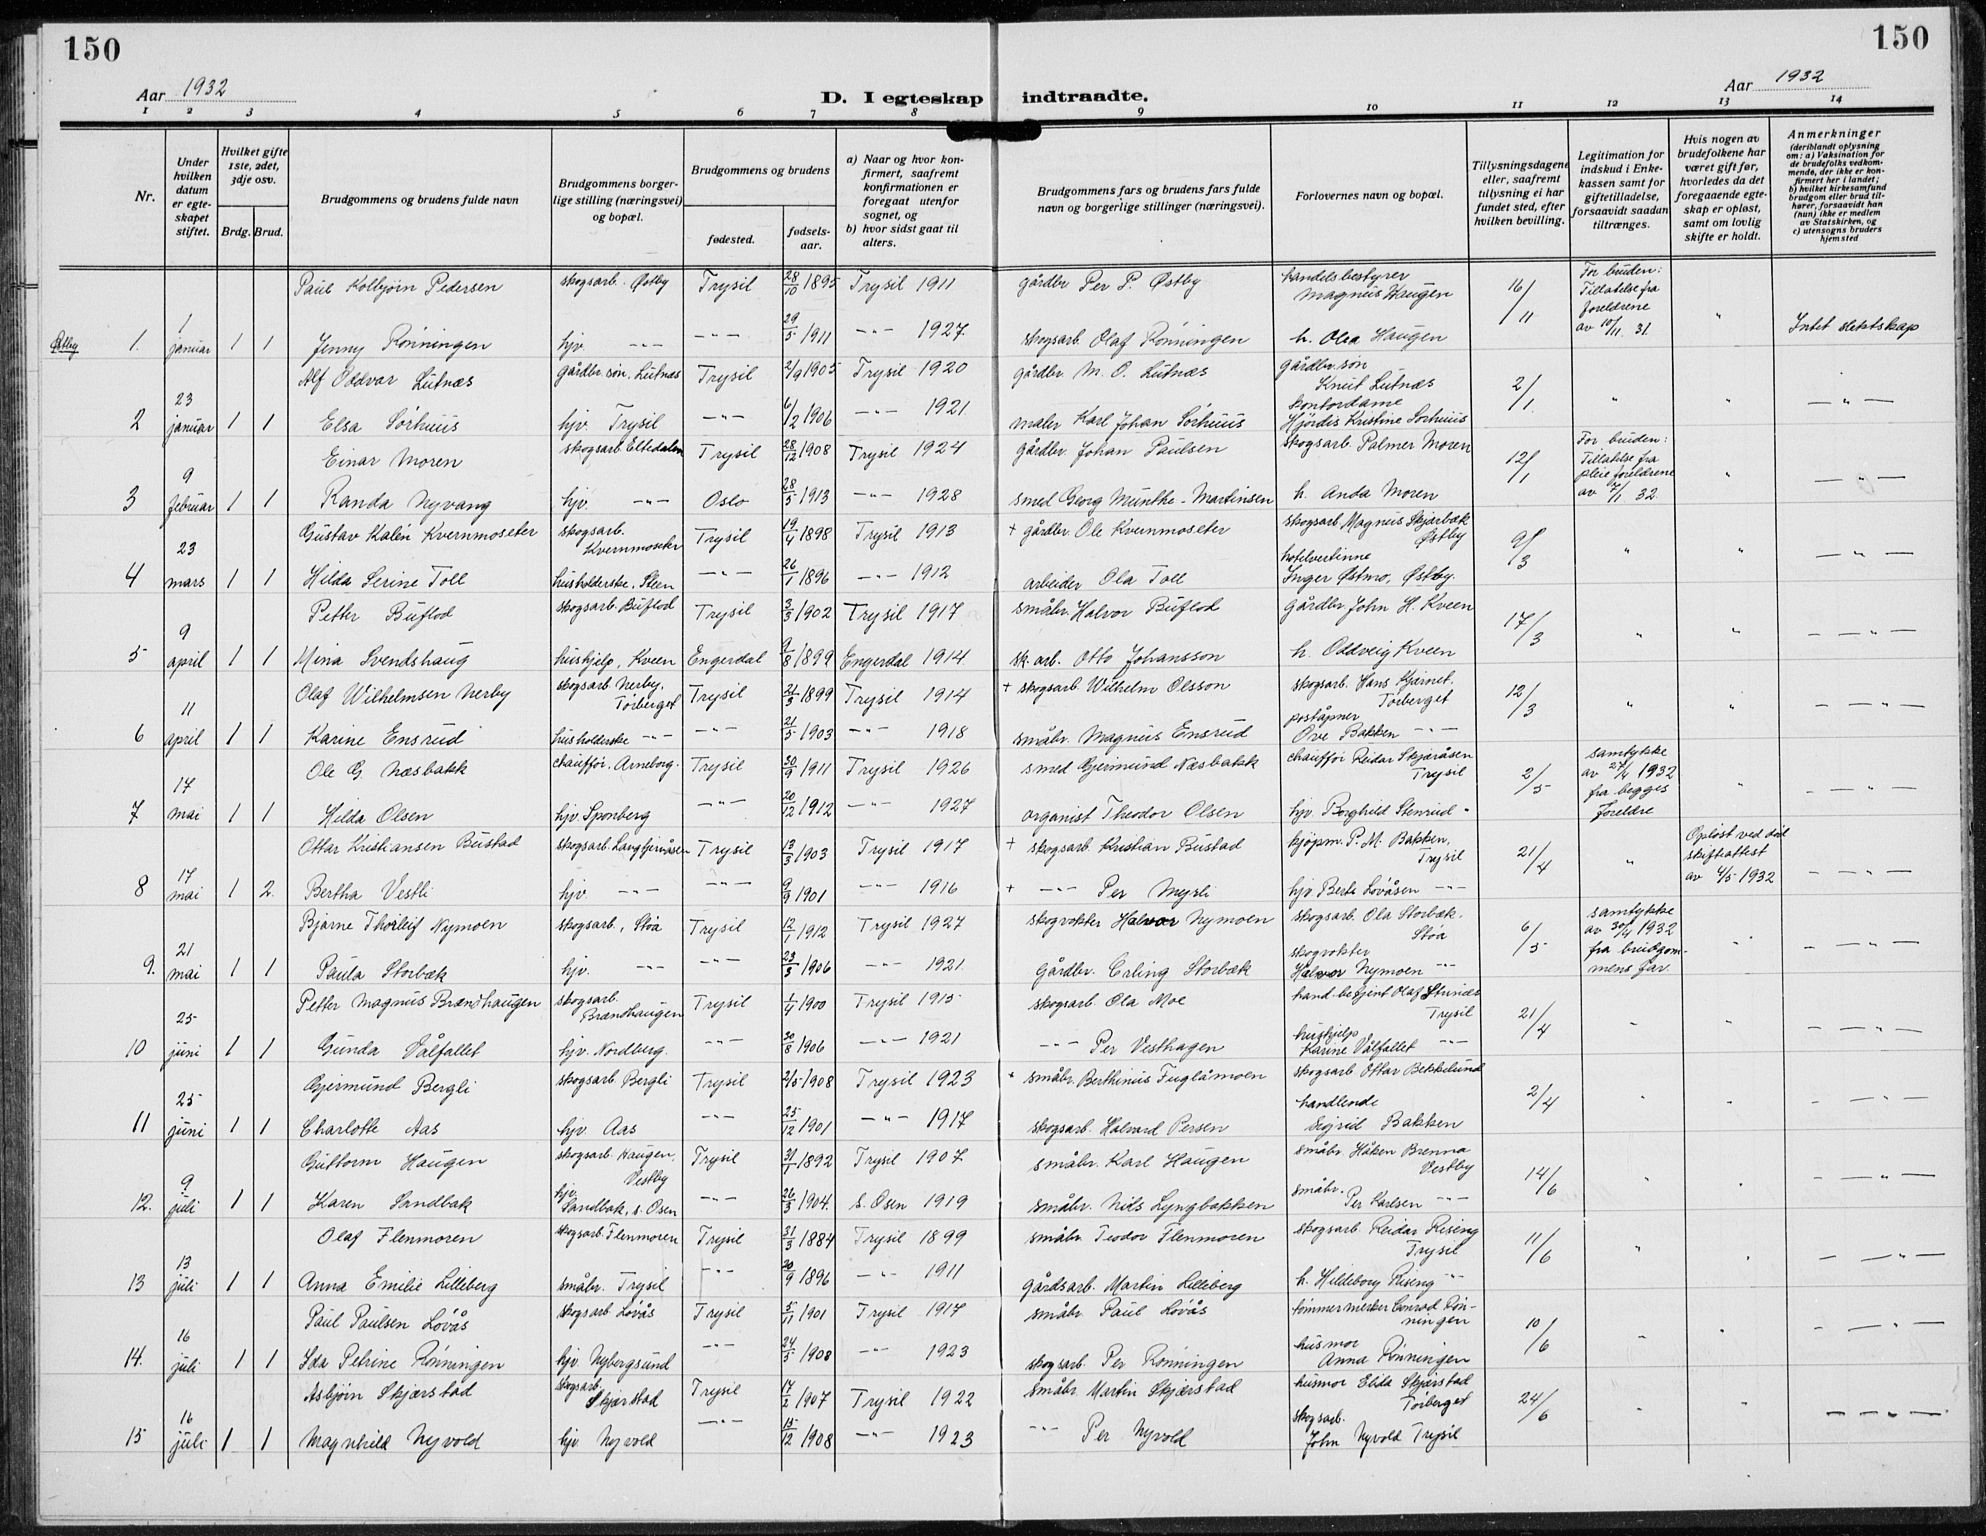 150
150
Aar 1932
Aar 1932
D. I egteskap indtraadte.
1 2 3 4 5 6 7 8 9 10 11 12 13 14
Nr.
Under hvilken datum er egteskapet stiftet.
Hvilket gifte 1ste, 2det, 3dje osv.
Brdg. Brud.
Brudgommens og brudens fulde navn
Brudgommens borgerlige stilling (næringsvei) og bopæl.
Brudgommens og brudens
fødested. fødselsaar.
a) Naar og hvor konfirmert, saafremt konfirmationen er foregaat utenfor sognet, og
b) hvor sidst gaat til alters.
Brudgommens fars og brudens fars fulde navn og borgerlige stillinger (næringsvei).
Forlovernes navn og bopæl.
Tillysningsdagene eller, saafremt tillysning ei har fundet sted, efter hvilken bevilling.
Legitimation for indskud i Enkekassen samt for giftetilladelse, forsaavidt saadan tiltrænges.
Hvis nogen av brudefolkene har været gift før, hvorledes da det foregaaende egteskap er opløst, samt om lovlig skifte er holdt.
Anmerkninger (deriblandt oplysning om: a) Vaksination for de brudefolks vedkommende, der ikke er konfirmert her i landet; b) hvilket kirkesamfund brudgom eller brud tilhører, forsaavidt han (hun) ikke er medlem av Statskirken, og c) utensogns bruders hjemsted
Paul Kolbjørn Pedersen skogsarb. Østby Trysil 28/10 1895 Trysil 1911 gårdbr Per P. Østby handelsbestyrer Magnus Haugen 16/11 For bruden: Tillatelse fra foreldrene av 10/11. 31 "
Østby 1. 1 januar 1 1 Jenny Rønningen hjv. -"- -"- 29/5 1911 -"- 1927 skogsarb. Olaf Rønningen h. Olea Haugen Intet slektskap
Alf Oddvar Lutnæs gårdbr. søn. Lutnæs Trysil 2/9 1905 Trysil 1920 gårdbr M. O. Lutnæs gårdbr. søn Knut Lutnæs 2/1. " "
2 23 januar 1 1 Elsa Sørhuus hjv. Trysil -"- 6/2 1906 -"- 1921 maler Karl Johan Sørhuus kontordame Hjørdis Kristine Sørhuus -"-
Einar Moren skogsarb Eltedalen Trysil 28/12 1908 Trysil 1924 gårdbr. Johan Paulsen skogsarb. Palmer Moren 12/1 For bruden: Tillatelse fra pleieforeldrene av 7/1 32 "
3 9 februar 1 1 Randa Nyvang hjv. -"- Oslo 28/5 1913 -"- 1928 smed Georg Munthe-Martinsen h. Anda Moren -"-
Gustav Kalén Kvernmoseter skogsarb. Kvernmoseter Trysil 19/4 1898 Trysil 1913 + gårdbr. Ole Kvernmoseter skogsarb Magnus Skjærbæk Østby 9/3 " "
4 23 mars 1 1 Hilda Serine Toll husholderske, Steen -"- 26/1 1896 -"- 1912 arbeider Ola Toll hotelvertinne Inger Østmo, Østby. -"-
Petter Buflod skogsarb. Buflod Trysil 3/3 1902 Trysil 1917 småbr. Halvor Buflod Gårdbr John H. Kveen 17/3 " "
5 9 april 1 1 Mina Svendshaug hushjelp, Kveen Engerdal 9/8 1899 Engerdal 1914 sk. arb. Otto Johansson h. Oddveig Kveen -"-
Olaf Wilhelmsen Nerby skogsarb Nerby, Tørberget Trysil 21/3 1899 Trysil 1914 + skogsarb. Wilhelm Olsson skogsarb. Hans Kjærnet. Tørberget 12/3 " "
6 11 april 1 1 Karine Ensrud husholderske -"- -"- 21/5 1903 -"- 1918 småbr. Magnus Ensrud poståpner Ove Bakken -"- -"-
Ole G Næsbakk chauffør. Arneborg. Trysil 30/9 1911 Trysil 1926 smed Gjermund Næsbakk chauffør Reidar Skjæråsen Trysil 2/5 samtykke av 27/4 1932 fra begges foreldre "
7 17 mai 1 1 Hilda Olsen hjv Sponberg -"- 20/12 1912 -"- 1927 organist Theodor Olsen hjv. Borghild Stenrud " -"-
Ottar Kristiansen Bustad skogsarb. Langfjernåsen Trysil 13/3 1903 Trysil 1917 + skogsarb Kristian Bustad kjøpm. P. M. Bakken, Trysil 21/4 " Opløst ved død skifteattest av 4/5 1932
8 17 mai 1 2. Bertha Vestli hjv. -"- -"- 9/9 1901 -"- 1916 + -"- Per Myrli hjv. Berte Løvåsen -"- -"-
Bjarne Thorleif Nymoen skogsarb., Støa Trysil 12/1 1912 Trysil 1927 skogvokter Halvor Nymoen skogsarb. Ola Storbæk. Støa 6/5 samtykke av 30/4 1932 fra brudgommens far. "
9. 21 mai 1 1 Paula Storbæk hjv. -"- -"- 23/3 1906 -"- 1921 gårdbr. Erling Storbæk skogvokter Halvor Nymoen -"- -"-
Petter Magnus Brændhaugen skogsarb. Brændhaugen Trysil 1/4 1900 Trysil 1915 skogsarb Ola Moe hand.betjent Olaf Strinæs Trysil 21/4 " "
10 25 juni 1 1 Gunda Vålfallet hjv. Nordberg. -"- 30/8 1906 -"- 1921 -"- Per Vesthagen hushjelp Karine Vålfallet -"- -"-
Gjermund Bergli skogsarb Bergli Trysil 2/5 1908 Trysil 1923 + småbr. Berthinus Fuglåmoen skogsarb Ottar Bekkelund 2/4 " "
11 25 juni 1 1 Charlotte Aas hjv Aas -"- 25/12 1901 -"- 1917 skogsarb. Halvard Persen handlende Sigrid Bakken -"-
Guttorm Haugen skogsarb Haugen, Vestby Trysil 31/1 1892 Trysil 1907 småbr. Karl Haugen småbr Håken Brenna Vestby 14/6 " "
12. 9 juli 1 1 Karen Sandbak hjv. Sandbak, s. Osen -"- 26/3 1904. s. Osen 1919 småbr. Nils Lyngbakken småbr. Per Karlsen -"- -"-
Olaf Flenmoren skogsarb. Flenmoren Trysil 31/3 1884 Trysil 1899 småbr. Teodor Flenmoren skogsarb. Reidar Riseng Trysil 11/6 " "
13 13 juli 1 1 Anna Emilie Lilleberg småbr. Trysil -"- 20/9 1896 -"- 1911 gårdsarb. Martin Lilleberg h. Hildeborg Riseng -"- -"-
Paul Paulsen Løvås skogsarb Løvås Trysil 5/11 1901 Trysil 1917 småbr Paul Løvås tømmermerker Conrad Rønningen 10/6 " "
14. 16 juli 1 1 Ida Petrine Rønningen hjv Nybergsund -"- 24/5 1908 -"- 1923 skogsarb. Per Rønningen husmor Anna Rønningen -"-
Asbjørn Skjærstad skogsarb. Skjærstad Trysil 17/2 1907 Trysil 1922 småbr Martin Skjærstad husmor Elida Skjærstad Tørberget 24/6 " "
15 16 juli 1 1 Magnhild Nyvold hjv Nyvold -"- 15/12 1908 -"- 1923 -"- Per Nyvold skogsarb. John Nyvold Trysil -"-